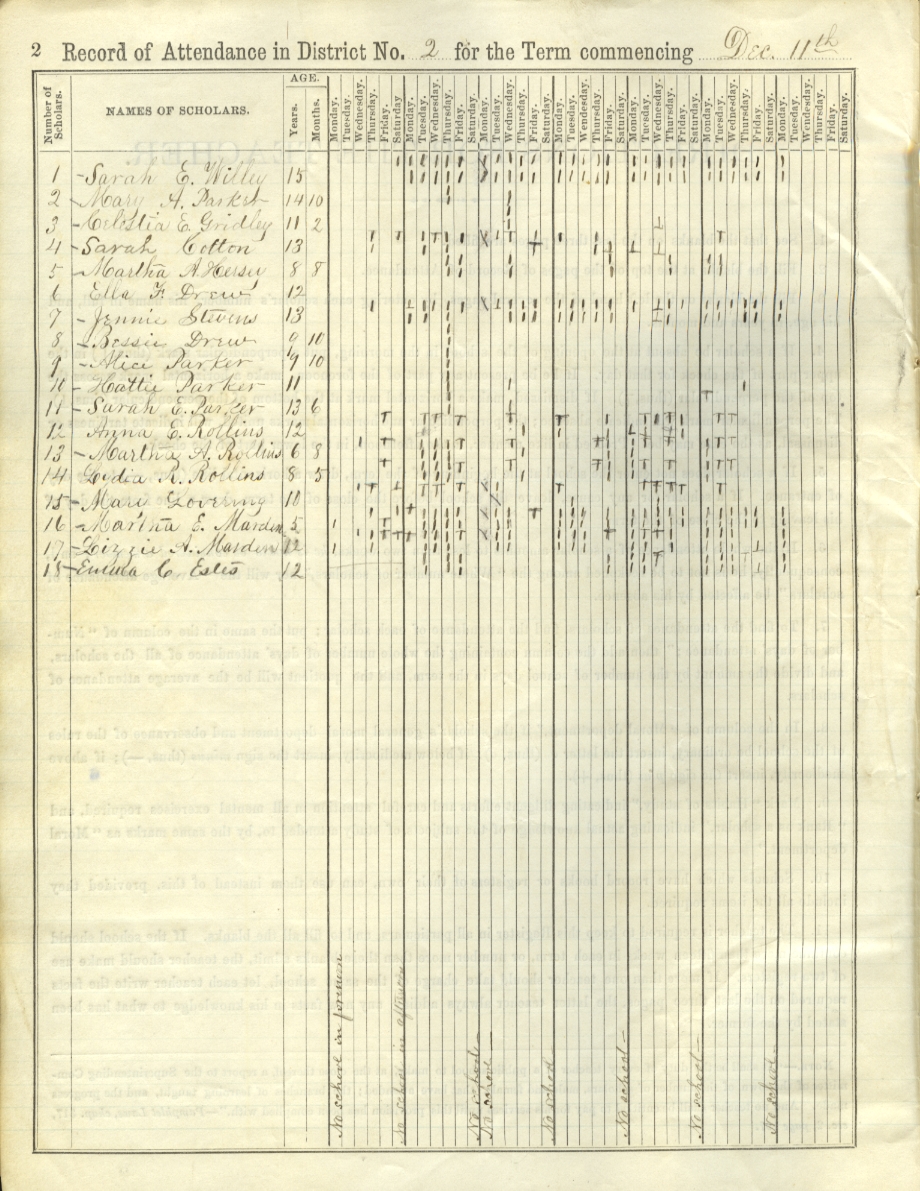 2 Record of Attendance in District No. 2 for the Term commencing Dec. 11th
Number of Scholars.
NAMES OF SCHOLARS.
AGE.
Years. Months.
Monday. Tuesday. Wednesday. Thursday. Friday. Saturday. Monday. Tuesday. Wednesday. Thursday. Friday. Saturday. Monday. Tuesday. Wednesday. Thursday. Friday. Saturday. Monday. Tuesday. Wednesday. Thursday. Friday. Saturday. Monday. Tuesday. Wednesday. Thursday. Friday. Saturday. Monday. Tuesday. Wednesday. Thursday. Friday. Saturday. Monday. Tuesday. Wednesday. Thursday. Friday. Saturday.
1 - Sarah E. Willey 15
2 - Mary A. Parker 14 10
3 - Celostia E. Gridley 11 2
4 - Sarah Cotton 13
5 - Martha A. Hersey 8 8
6 Ella F. Drew 12
7 - Jennie Stevens 13
8 - Bessie Drew 9 10
9 - Alice Parker 9 10
10 - Hattie Parker 11
11 - Sarah E. Parker 13 6
12 Anna E. Rollins 12
13 - Martha A. Rollins 6 8
14 Lydia R. Rollins 8 5
15 - Mary Lovering 10
16 - Martha E. Marden 5
17 - Lizzie A. Marden 12
18 - Emma C Estes 12
No school in forenoon
No school in afternoon
No school
No school
No school
No school
No school
No school